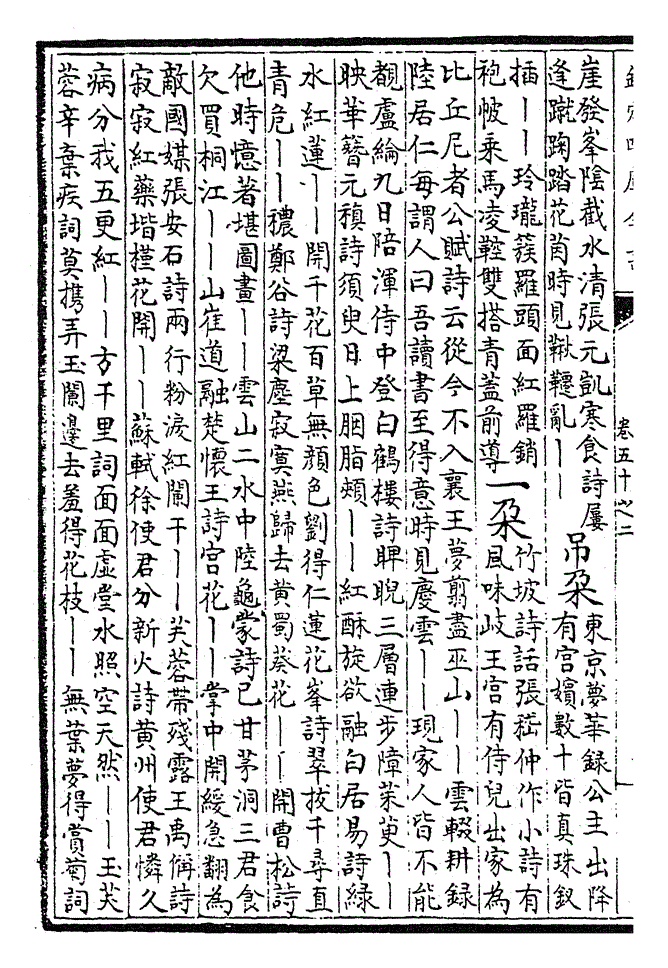 卷五十之二
崖發峯陰截水清張元凱寒食詩屢
逢蹴踘踏花茵時見鞦韆亂||
吊朶
東京夢華録公主出降
有宫嬪數十皆真珠釵
插||玲瓏簇羅頭面紅羅銷
袍帔乗馬凌鞚雙搭青蓋前導
一朶
竹坡詩話張嵇仲作小詩有
風味岐王宫有侍兒出家為
比丘尼者公賦詩云從今不入襄王夢剪盡巫山||雲輟耕録
陸居仁每謂人曰吾讀書至得意時見慶雲||現家人皆不能
覩盧綸九日陪渾侍中登白鶴樓詩睥睨三層連步障茱萸||
映華簪元稹詩須臾日上胭脂頰||紅酥旋欲融白居易詩緑
水紅蓮||開千花百草無顔色劉得仁蓮花峯詩翠拔千尋直
青危||穠鄭谷詩梁塵寂寞燕歸去黄蜀葵花||開曹松詩
他時憶著堪圖畫||雲山二水中陸龜蒙詩已甘茅洞三君食
欠買桐江||山崔道融楚懷王詩宫花||掌中開緩急翻為
敵國媒張安石詩兩行粉淚紅闌干||芙蓉帶殘露王禹偁詩
寂寂紅藥堦槿花開||蘇軾徐使君分新火詩黄州使君憐久
病分我五更紅||方千里詞面面虚堂水照空天然||玉芙
蓉辛棄疾詞莫擕弄玉闌邊去羞得花枝||無葉夢得賞菊詞